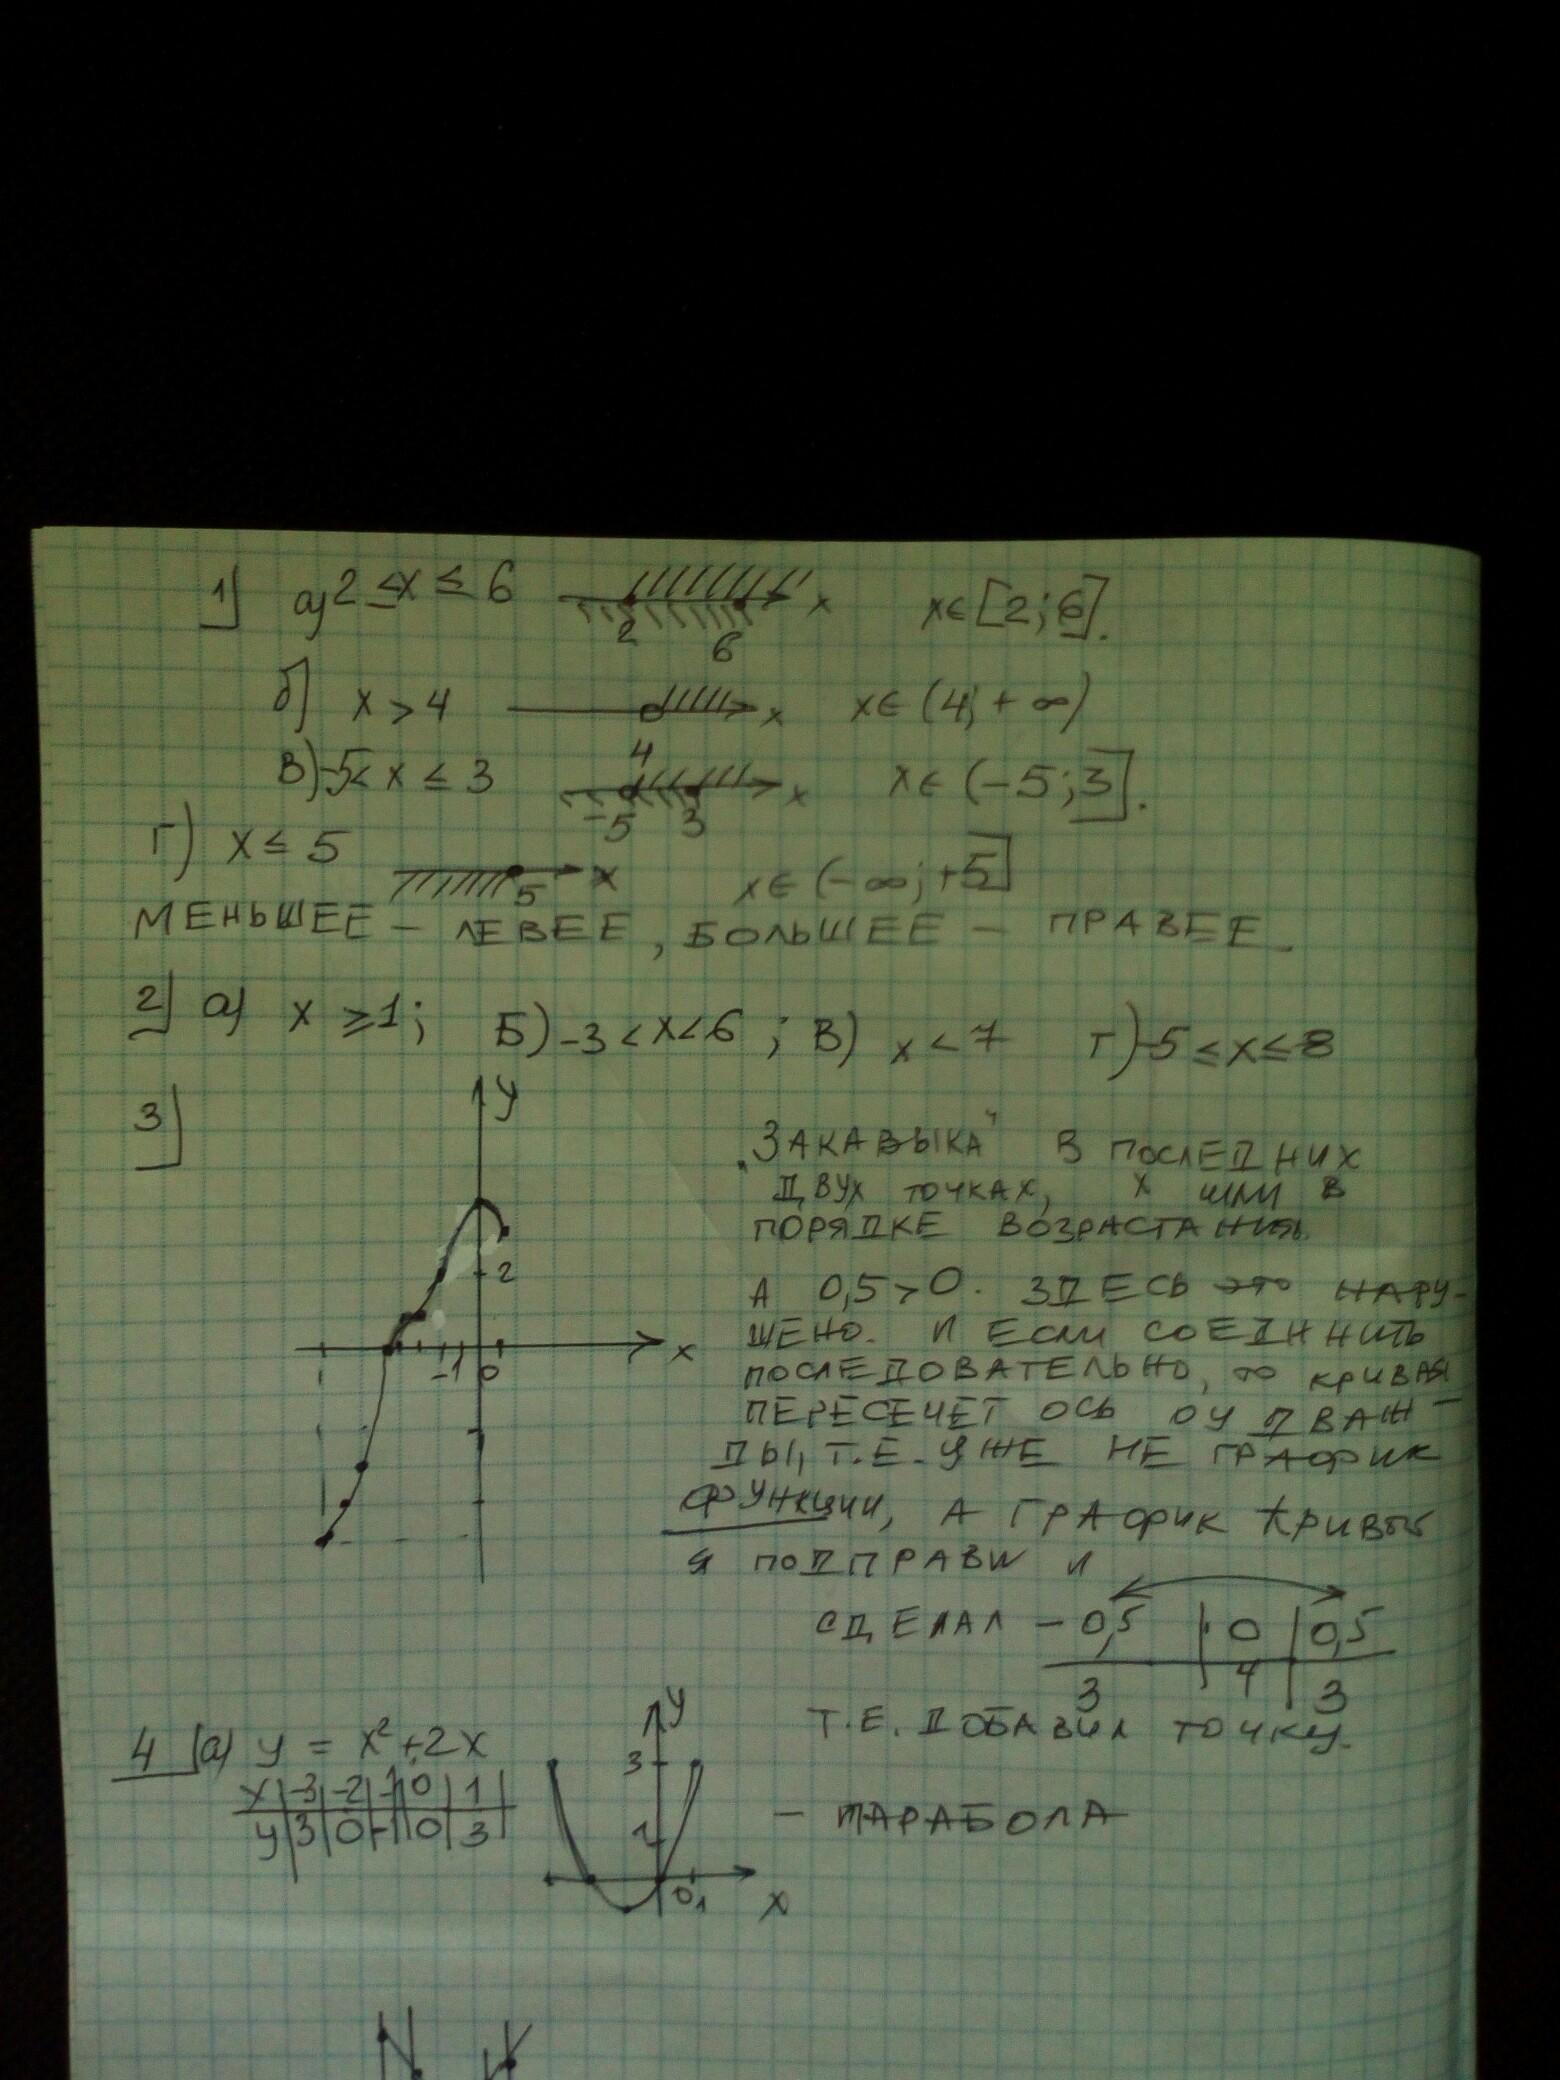 1) а) 2 ≤ x ≤ 6 2 6 x x ∈ [2; 6].
б) x > 4 4 x x ∈ (4; + ∞)
В) -5 < x ≤ 3 -5 3 x x ∈ (-5; 3].
Г) x ≤ 5 5 x x ∈ (-∞; +5]
МЕНЬШЕЕ – ЛЕВЕЕ, БОЛЬШЕЕ – ПРАВЕЕ.
2) а) x ≥ 1; Б) -3 < x < 6; В) x < 7 Г) -5 ≤ x ≤ 8
3)
y
2
-1 0 x
„ЗАКАВЫКА" В ПОСЛЕДНИХ
ДВУХ ТОЧКАХ, X ШЛИ В
ПОРЯДКЕ ВОЗРАСТАНИЯ.
А 0,5 > 0. ЗДЕСЬ ЭТО НАРУ-
ШЕНО. И ЕСЛИ СОЕДИНИТЬ
ПОСЛЕДОВАТЕЛЬНО, ТО КРИВАЯ
ПЕРЕСЕЧЕТ ОСЬ ОУ ДВАЖ-
ДЫ, Т.Е. УЖЕ НЕ ГРАФИК
ФУНКЦИИ, А ГРАФИК КРИВОЙ
Я ПОДПРАВИЛ И
СДЕЛАЛ -0,5 | 0 | 0,5
3 4 3
Т.Е. ДОБАВИЛ ТОЧКУ.
4) а) y = x² + 2x
x | -3 | -2 | -1 | 0 | 1
y | 3 | 0 | -1 | 0 | 3
y
3
1
0 1 x
– ПАРАБОЛА